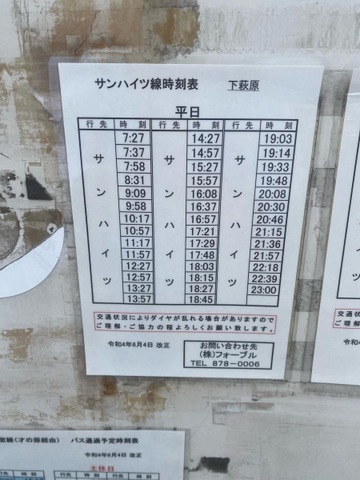 サンハイツ線時刻表 下萩原
平日
行先 時刻 行先 時刻 行先 時刻
7:27 14:27 19:03
7:37 14:57 19:14
サ 7:58 サ 15:27 サ 19:33
8:31 15:57 19:48
ン 9:09 ン 16:08 ン 20:08
9:58 16:37 20:30
ハ 10:17 ハ 16:57 ハ 20:46
10:57 17:01 21:15
イ 11:17 イ 17:29 イ 21:36
11:57 17:48 21:57
ツ 12:27 ツ 18:03 ツ 22:18
12:57 18:15 22:39
13:27 18:27 23:00
13:57 18:45
交通状況によりダイヤが乱れる場合がありますので
ご理解・ご協力の程よろしくお願い致します。
令和4年6月4日 改正
お問い合わせ先
(株)フォーブル
TEL 878-0006
(才の原経由) バス通過予定時刻表
令和4年6月4日 改正
土休日
行先 時刻 行先 時刻